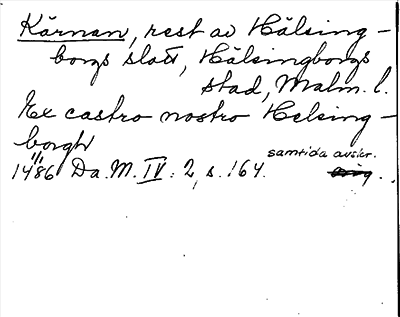 Kärnan, rest av Hälsing-
borgs slott, Hälsingborgs
stad, Malm. l.
Ex castro nostro Helsing-
borgh
1/11 1486 Da. M. IV: 2, s. 164. samtida avskr.